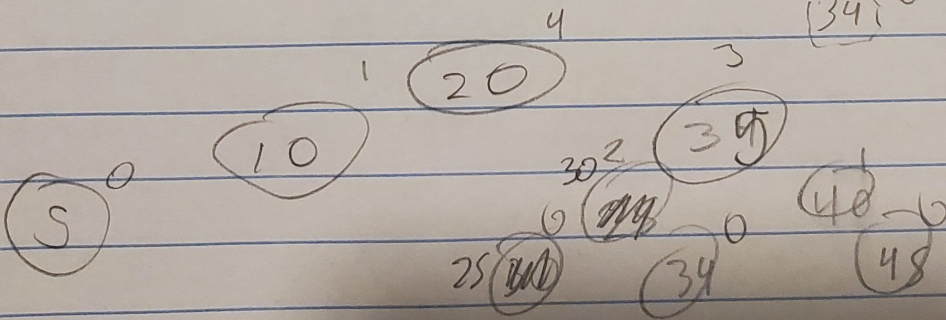 4 (34)
1 20 3
10 39
0 30 2 1
5 40
0 0 0
25 34 48